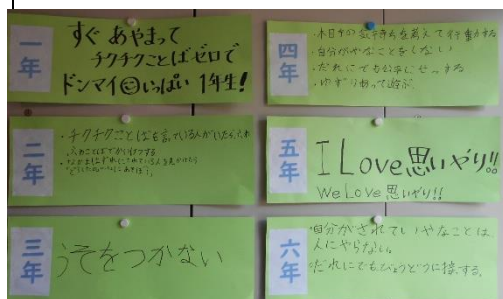 一年
すぐ あやまって
チクチクことばゼロで
ドンマイ☺いっぱい 1年生!
二年
・チクチクことばを言っている人がいたら
三年
うそをつかない
四年
・相手の気持ちを考えて行動する
・自分がやなことをしない
・だれにでも公平にせっする
・ゆずり合って遊ぶ
五年
I Love 思いやり!!
We Love 思いやり!!
六年
・自分がされていやなことは、
人にやらない。
・だれにでもびょうどうに接する。